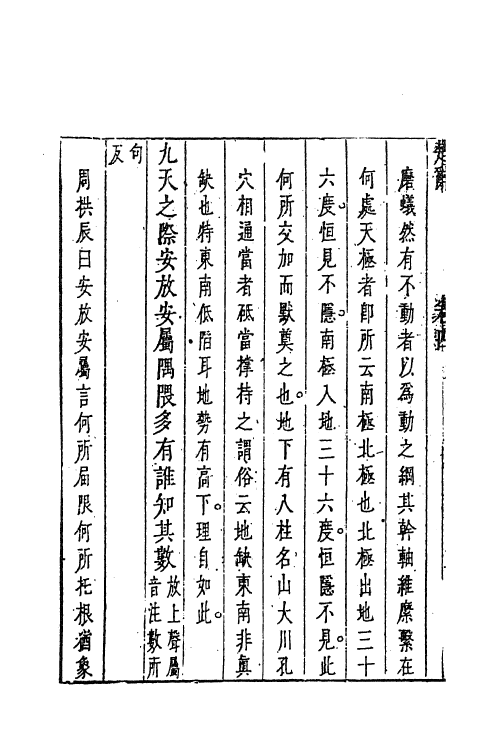 楚辭
磨蟻然有不動者以為動之綱其幹軸維縻繫在
何處天極者卽所云南極北極也北極出地三十
六度恒見不隱南極入地三十六度恒隱不見此
何所交加而默奠之也地下有八柱名山大川孔
穴相通當者砥當撐持之謂俗云地缺東南非真
缺也特東南低陷耳地勢有高下理自如此
九天之際安放安屬隅隈多有誰知其數放上聲屬音注數所
句反
周拱辰曰安放安屬言何所屆限何所托根猶象